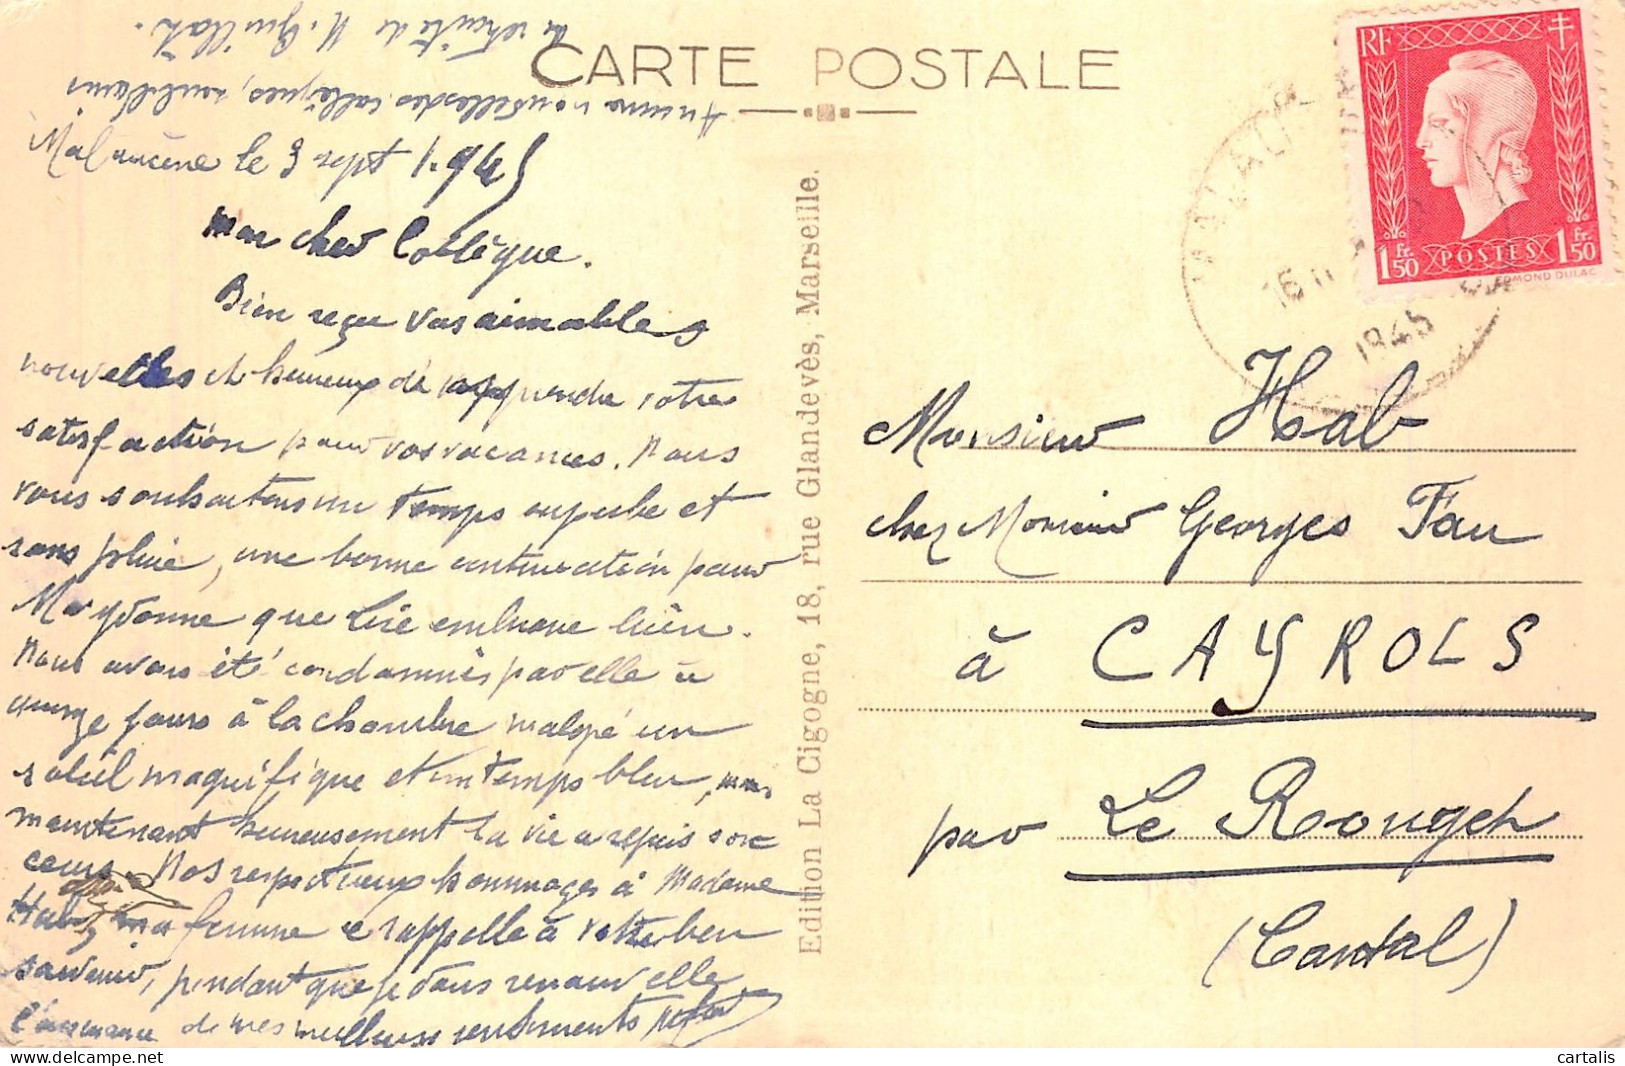 CARTE POSTALE
Aucune nouvelles des collègues,
de retraite de M. Guillot.
Malaucène le 3 sept 1.945
Mon cher Collègue.
Bien reçu vos aimables
nouvelles et heureux de apprendre votre
satisfaction pour vos vacances. Nous
vous souhaitons un temps superbe et
sans pluie, une bonne continuation pour
que embrasse bien.
Nous avons été condamnés par elle à
quinze jours à la chambre malgré un
soleil magnifique et un temps bleu,
maintenant heureusement la vie a repris son
cours. Nos respectueux hommages à Madame
Hab, ma femme se rappelle à votre bon
souvenir, pendant que je vous renouvelle
l'assurance de mes meilleurs sentiments
Edition La Cigogne, 18, rue Glandevès, Marseille.
RF
1 Fr. 50 POSTES 1 Fr. 50
EDMOND DULAC
1945
Monsieur Hab
chez Monsieur Georges Fau
à CAYROLS
par Le Rouget
(Cantal)
cartalis